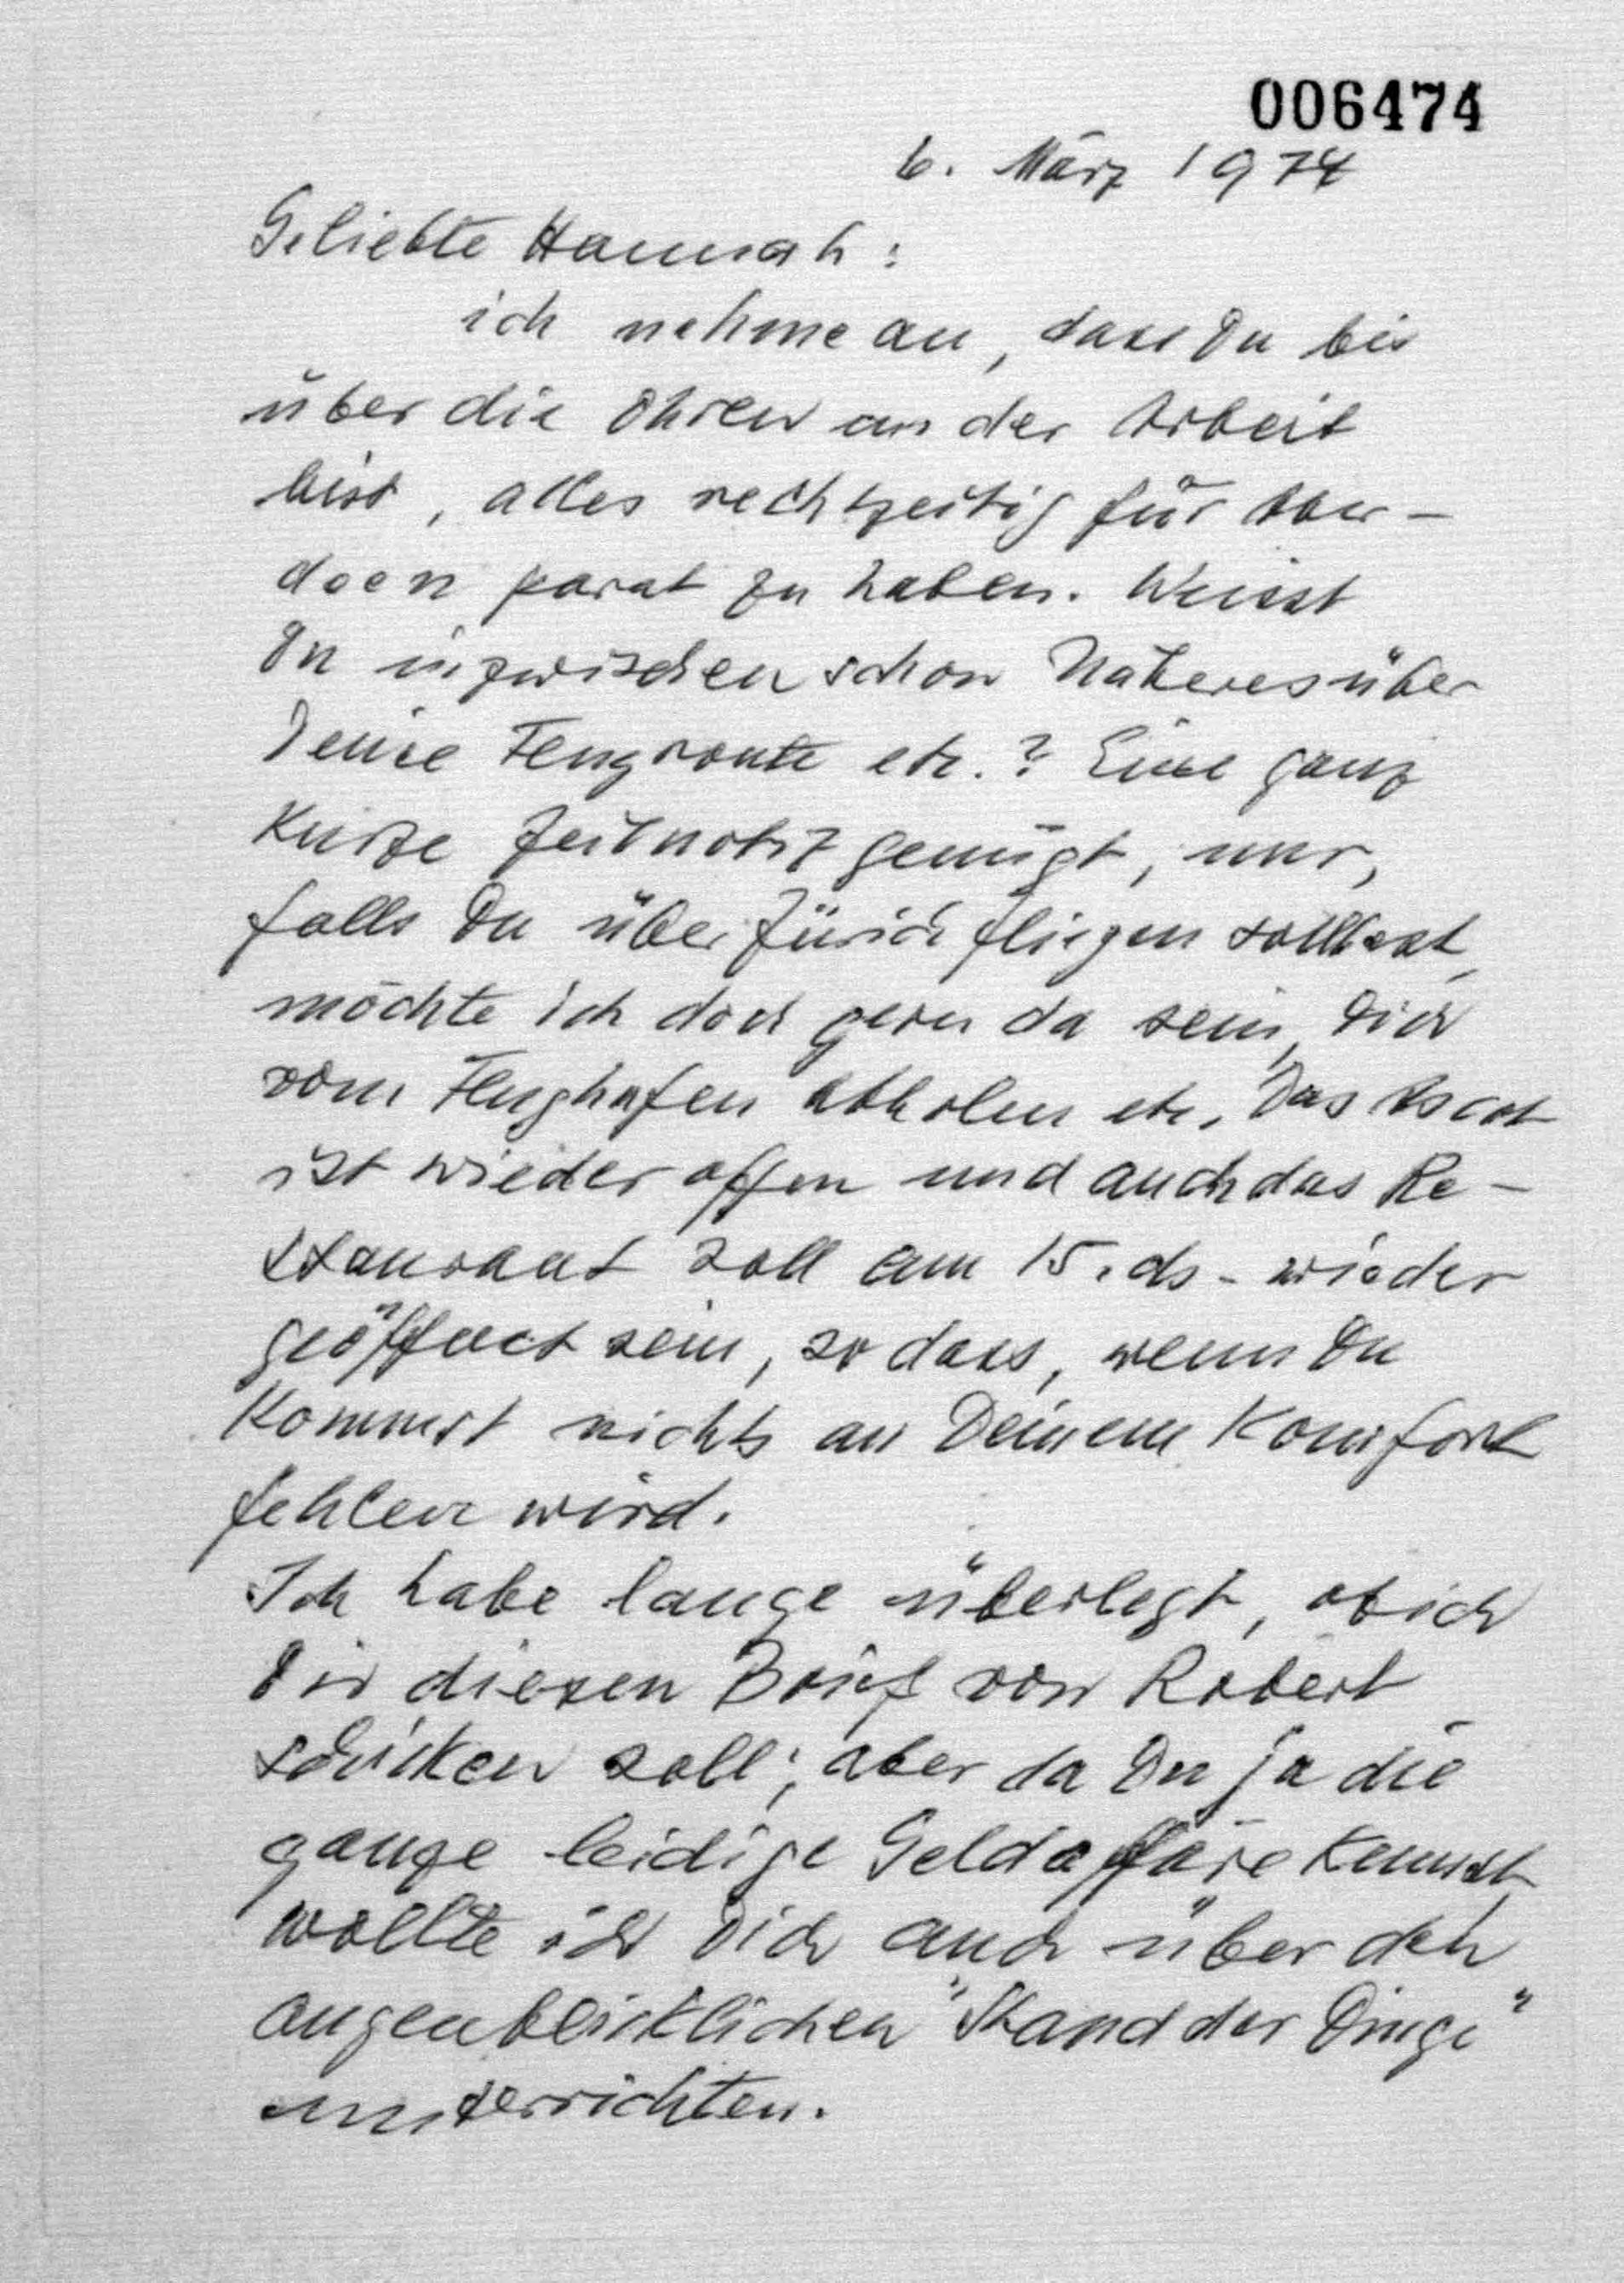 006474
6. März 1974
Geliebte Hannah:
ich nehme an, dass Du bis
über die Ohren an der Arbeit
bist, alles rechtzeitig für Aber-
deen parat zu haben. Weisst
Du inzwischen schon Näheres über
Deine Flugroute etc.? Eine ganz
kurze Zeitnotiz genügt, nur,
falls Du über Zürich fliegen solltest,
möchte ich doch gern da sein, Dich
vom Flughafen abholen etc. Das Ascot
ist wieder offen und auch das Re-
staurant soll am 15. ds. wieder
geöffnet sein, so dass, wenn Du
kommst nichts an Deinem Komfort
fehlen wird.
Ich habe lange überlegt, ob ich
Dir diesen Brief von Robert
schicken soll; aber da Du ja die
ganze leidige Geldaffäre kennst,
wollte ich Dich auch über den
augenblicklichen "Stand der Dinge"
unterrichten.